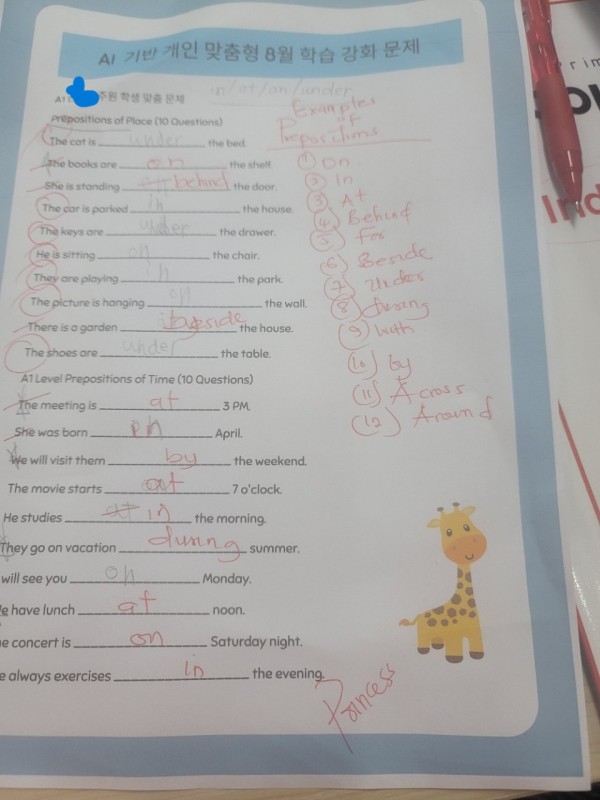 AI 기반 개인 맞춤형 8월 학습 강화 문제
in/at/on/under
A1 주원 학생 맞춤 문제
Examples
of
Prepositions
Prepositions of Place (10 Questions)
The cat is under the bed.
The books are on the shelf.
She is standing behind the door.
The car is parked in the house.
The keys are under the drawer.
He is sitting on the chair.
They are playing in the park.
The picture is hanging on the wall.
There is a garden byeside the house.
The shoes are under the table.
① On
② In
③ At
④ Behind
⑤ For
⑥ Beside
⑦ Under
⑧ during
⑨ with
⑩ by
⑪ Across
⑫ Around
A1 Level Prepositions of Time (10 Questions)
The meeting is at 3 PM.
She was born April.
We will visit them by the weekend.
The movie starts at 7 o'clock.
He studies at in the morning.
They go on vacation during summer.
will see you on Monday.
e have lunch at noon.
e concert is on Saturday night.
e always exercises in the evening.
Princess
rim
Ind